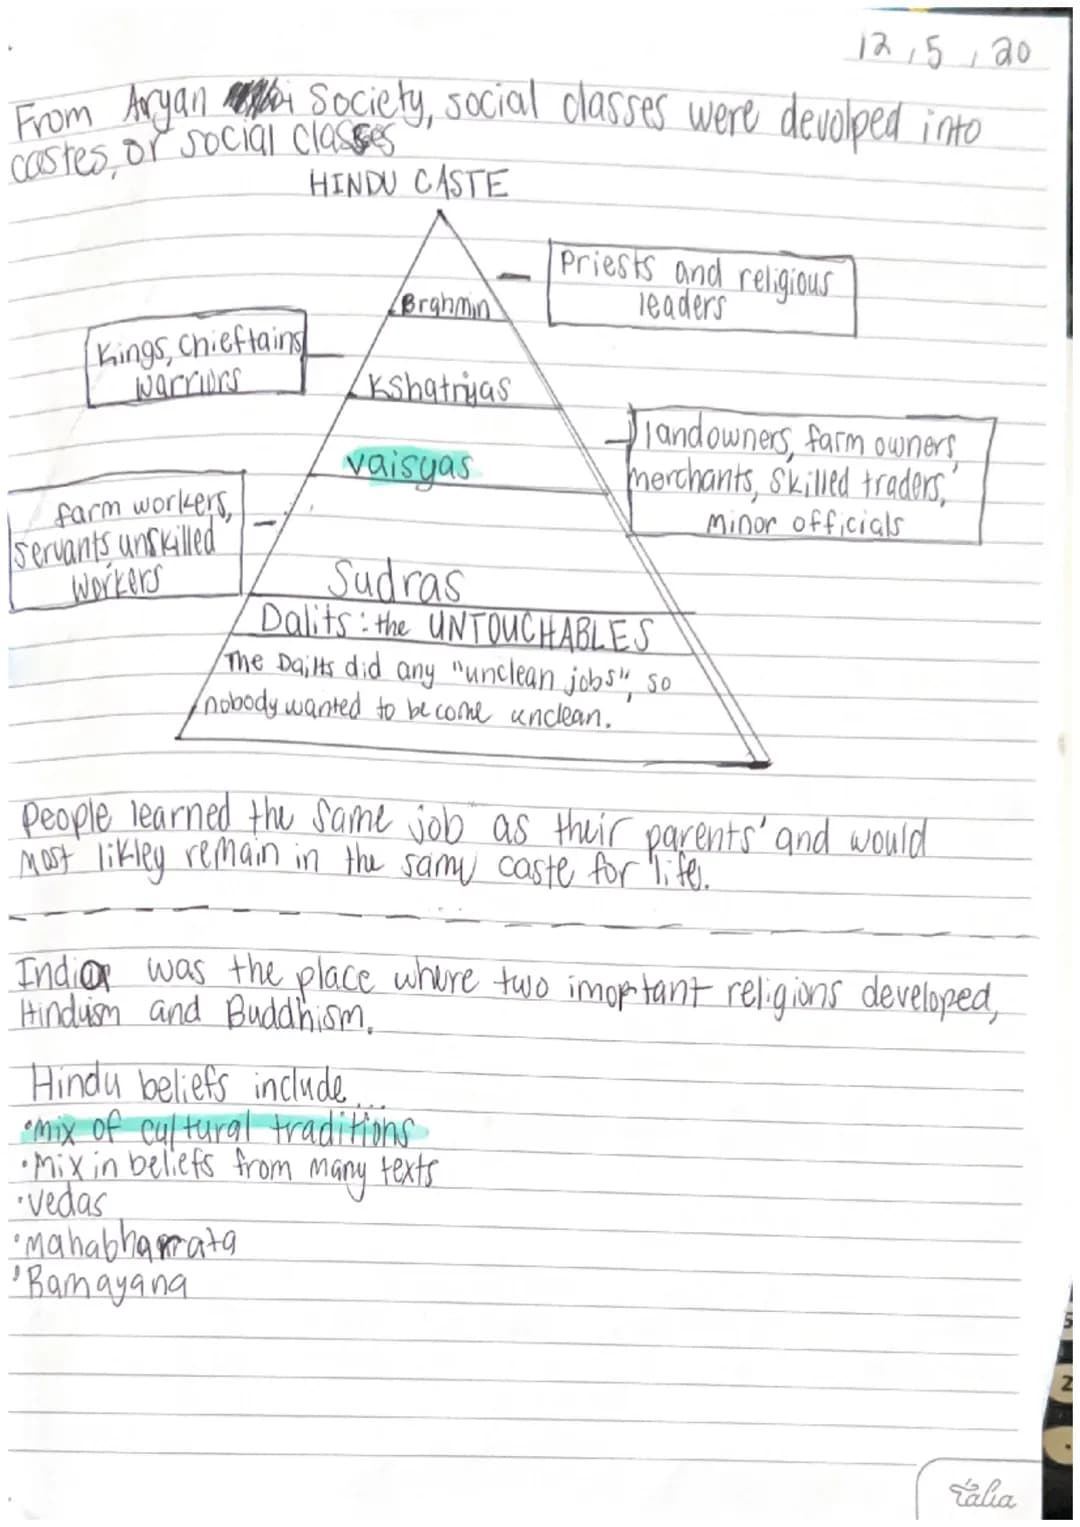 12,5,20
From Aryan Society, social classes were devolped into
castes, or social classes
HINDU CASTE
Priests and religious
leaders
Brahmin
Kings, chieftains
warriors
Kshatriyas
landowners, farm owners,
merchants, skilled traders,
minor officials
vaisyas
farm workers,
servants unskilled
workers
Sudras
Dalits: the UNTOUCHABLES
The Dailts did any "unclean jobs", so
nobody wanted to become unclean.
People learned the same job as their parents' and would
most likley remain in the same caste for life.
India was the place where two imoptant religions developed,
Hinduism and Buddhism.
Hindu beliefs include...
•mix of cultural traditions
•Mix in beliefs from many texts
•vedas
•mahabharata
•Ramayana
Talia